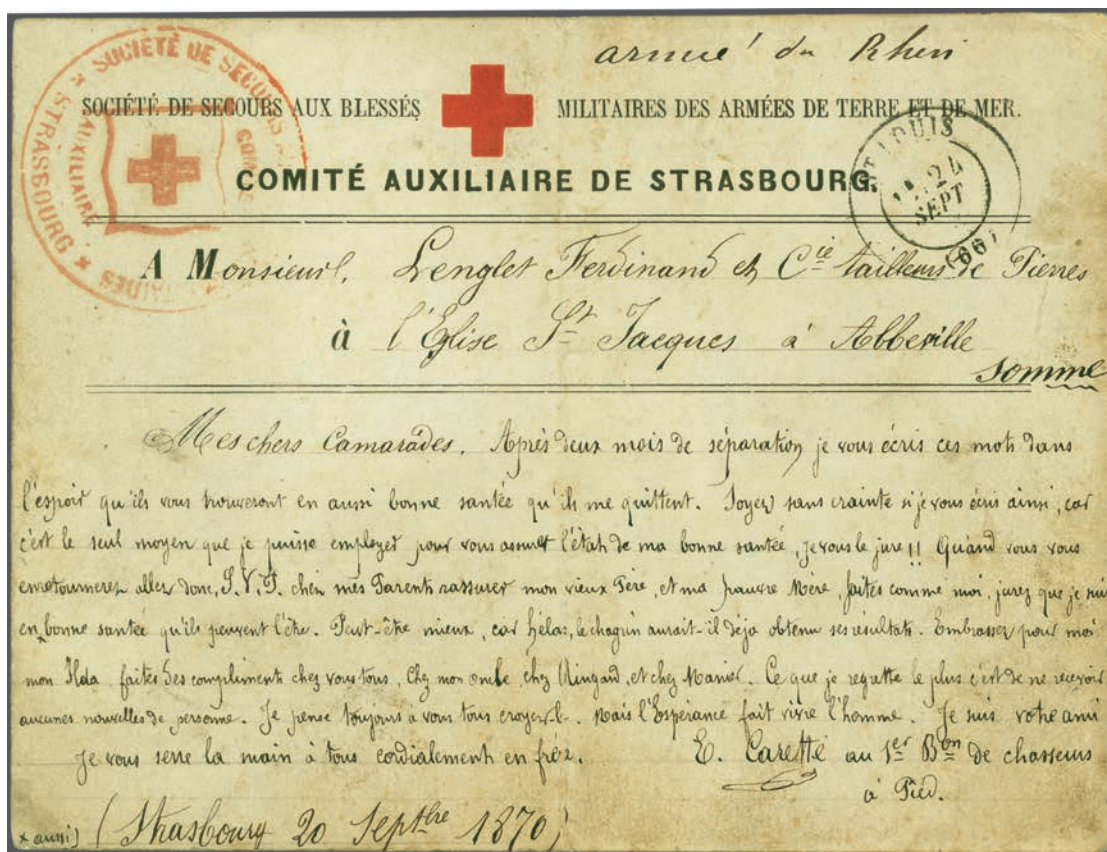 armée du Rhin
SOCIÉTÉ DE SECOURS AUX BLESSÉS MILITAIRES DES ARMÉES DE TERRE ET DE MER.
COMITÉ AUXILIAIRE DE STRASBOURG.
SOCIÉTÉ DE SECOURS
STRASBOURG
AUXILIAIRE
ST LOUIS
24
SEPT
(66)
A Monsieur Lenglet Ferdinand et Cie tailleurs de Pierres
à l'Eglise St Jacques à Abbeville
Somme
Mes chers Camarades. Après deux mois de séparation je vous écris ces mots dans
l'espoir qu'ils vous trouveront en aussi bonne santée qu'ils me quittent. Soyez sans crainte si je vous écris ainsi, car
c'est le seul moyen que je puisse employer pour vous assurer l'état de ma bonne santée, je vous le jure !! Quand vous vous
enretournerez allez donc, S.V.P. chez mes Parents rassurer mon vieux Père, et ma pauvre Mère, faites comme moi, jurez que je suis
en bonne santée qu'ils peuvent l'être. Peut-être mieux, car hélas, le chagrin aurait-il déja obtenu ses resultats. Embrassez pour moi
mon Ilda faites des compliments chez vous tous, Chez mon oncle, chez Mingard, et chez Manier. Ce que je regrette le plus c'est de ne recevoir
aucunes nouvelles de personne. Je pense toujours à vous tous croyez-le. Mais l'Espérance fait vivre l'homme. Je suis votre ami
Je vous serre la main à tous cordialement en
E. Carette au 1er Bon de chasseurs
à Pied.
x aussi) (Strasbourg 20 Septbre 1870)